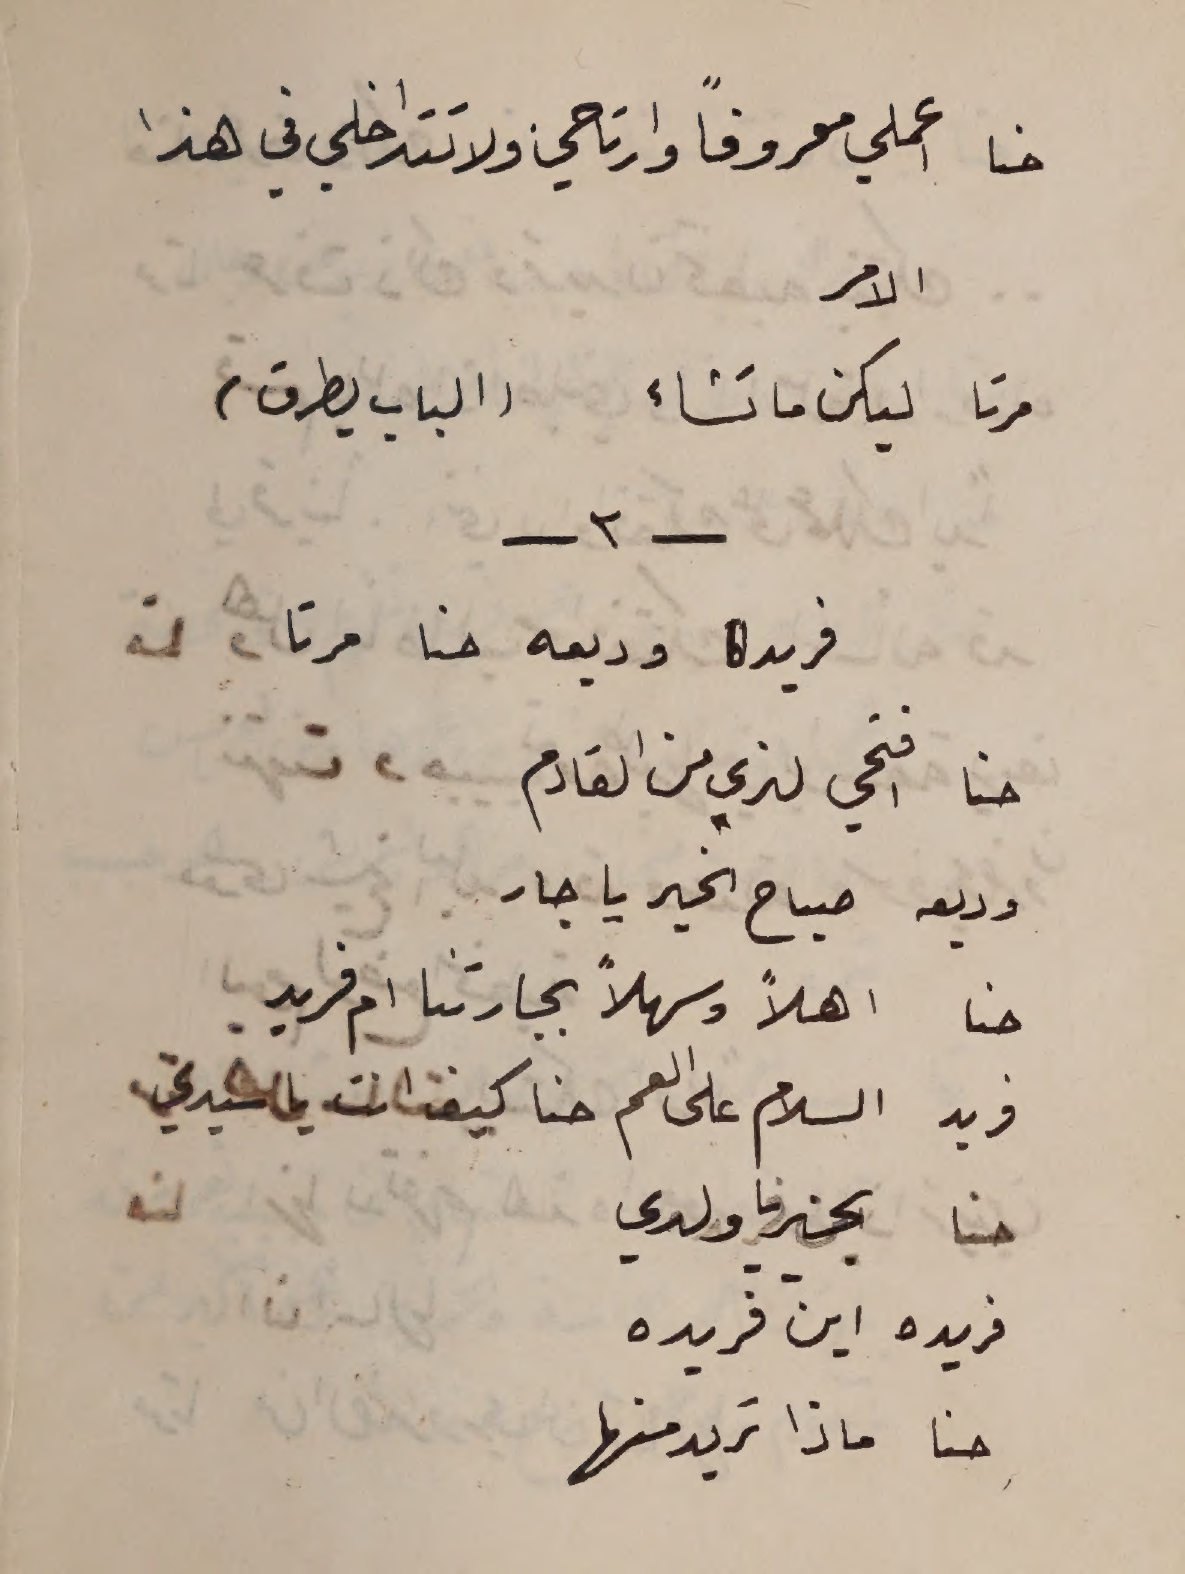 حنا اعملي معروفاً وارتاحي ولا تتداخلي في هذا
الامر
مرتا ليكن ما تشاء (الباب يطرق)
— ٢ —
فريده وديعه حنا مرتا
حنا افتحي لنري من القادم
وديعه صباح الخير يا جار
حنا اهلاً وسهلاً بجارتنا ام فريد
فريد السلام على العم حنا كيف انت يا سيدي
حنا بخير يا ولدي
فريده اين فريده
حنا ماذا تريد منها